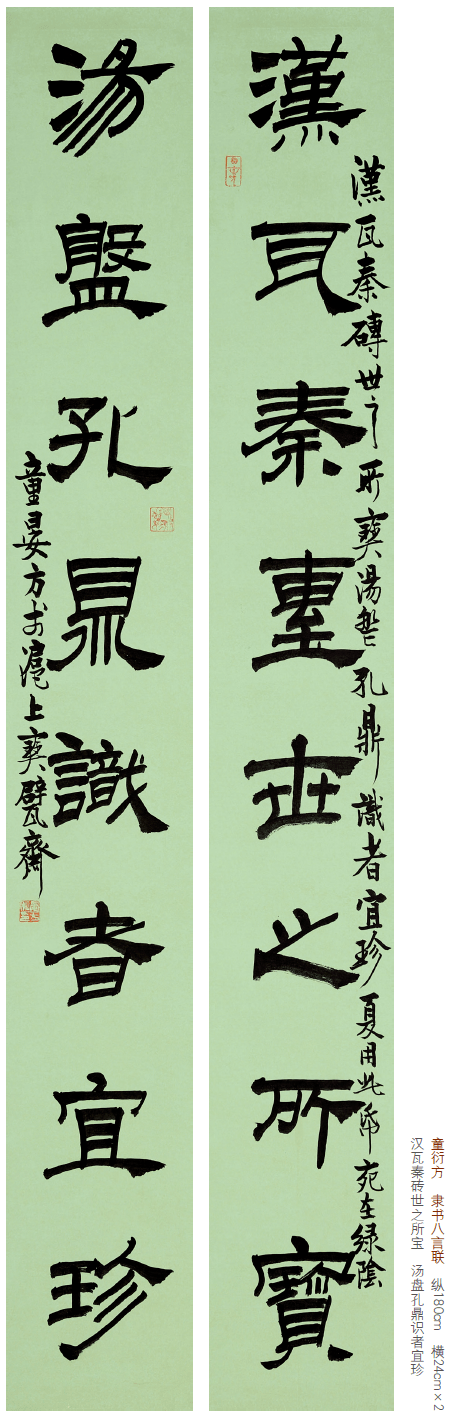 童衍方 隶书八言联 纵180cm 横24cm×2
汉瓦秦砖世之所宝 汤盘孔鼎识者宜珍
漢瓦秦磚世之所寶湯盤孔鼎識者宜珍夏用此帋宛在緑陰
漢瓦秦專世之所寶
湯盤孔鼎識者宜珍
童晏方于滬上寶甓齋